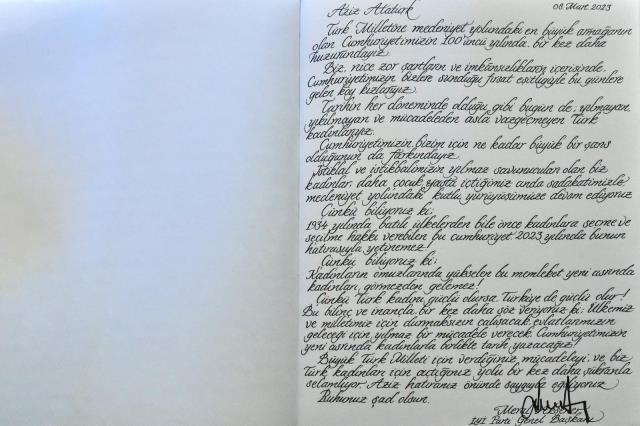 Aziz Atatürk 08 Mart 2023
Türk Milletine medeniyet yolundaki en büyük armağanın
olan Cumhuriyetimizin 100'üncü yılında, bir kez daha
huzurundayız.
Biz, nice zor şartların ve imkânsızlıkların içerisinde,
Cumhuriyetimizin bizlere sunduğu fırsat eşitliğiyle bu günlere
gelen köy kızlarıyız.
Tarihin her döneminde olduğu gibi bugün de; yılmayan,
yıkılmayan ve mücadeleden asla vazgeçmeyen Türk
kadınlarıyız.
Cumhuriyetimizin bizim için ne kadar büyük bir şans
olduğunun da farkındayız.
İstiklal ve istikbalimizin yılmaz savunucuları olan biz
kadınlar, daha çocuk yaşta içtiğimiz anda sadakatimizle
medeniyet yolundaki kutlu yürüyüşümüze devam ediyoruz.
Çünkü biliyoruz ki;
1934 yılında batılı ülkelerden bile önce kadınlara seçme ve
seçilme hakkı verebilen bu cumhuriyet 2023 yılında bunun
hatırasıyla yetinemez!
Çünkü biliyoruz ki;
Kadınların omuzlarında yükselen bu memleket yeni asrında
kadınları görmezden gelemez!
Çünkü Türk kadını güçlü olursa, Türkiye de güçlü olur!
Bu bilinç ve inançla bir kez daha söz veriyoruz ki; Ülkemiz
ve milletimiz için durmaksızın çalışacak, evlatlarımızın
geleceği için yılmaz bir mücadele verecek, Cumhuriyetimizin
yeni asrında kadınlarla birlikte tarih yazacağız!
Büyük Türk Milleti için verdiğiniz mücadeleyi, ve biz
Türk kadınları için açtığınız yolu bir kez daha şükranla
selamlıyor, Aziz hatıranız önünde saygıyla eğiliyoruz.
Ruhunuz şad olsun.
Meral Akşener
İYİ Parti Genel Başkanı